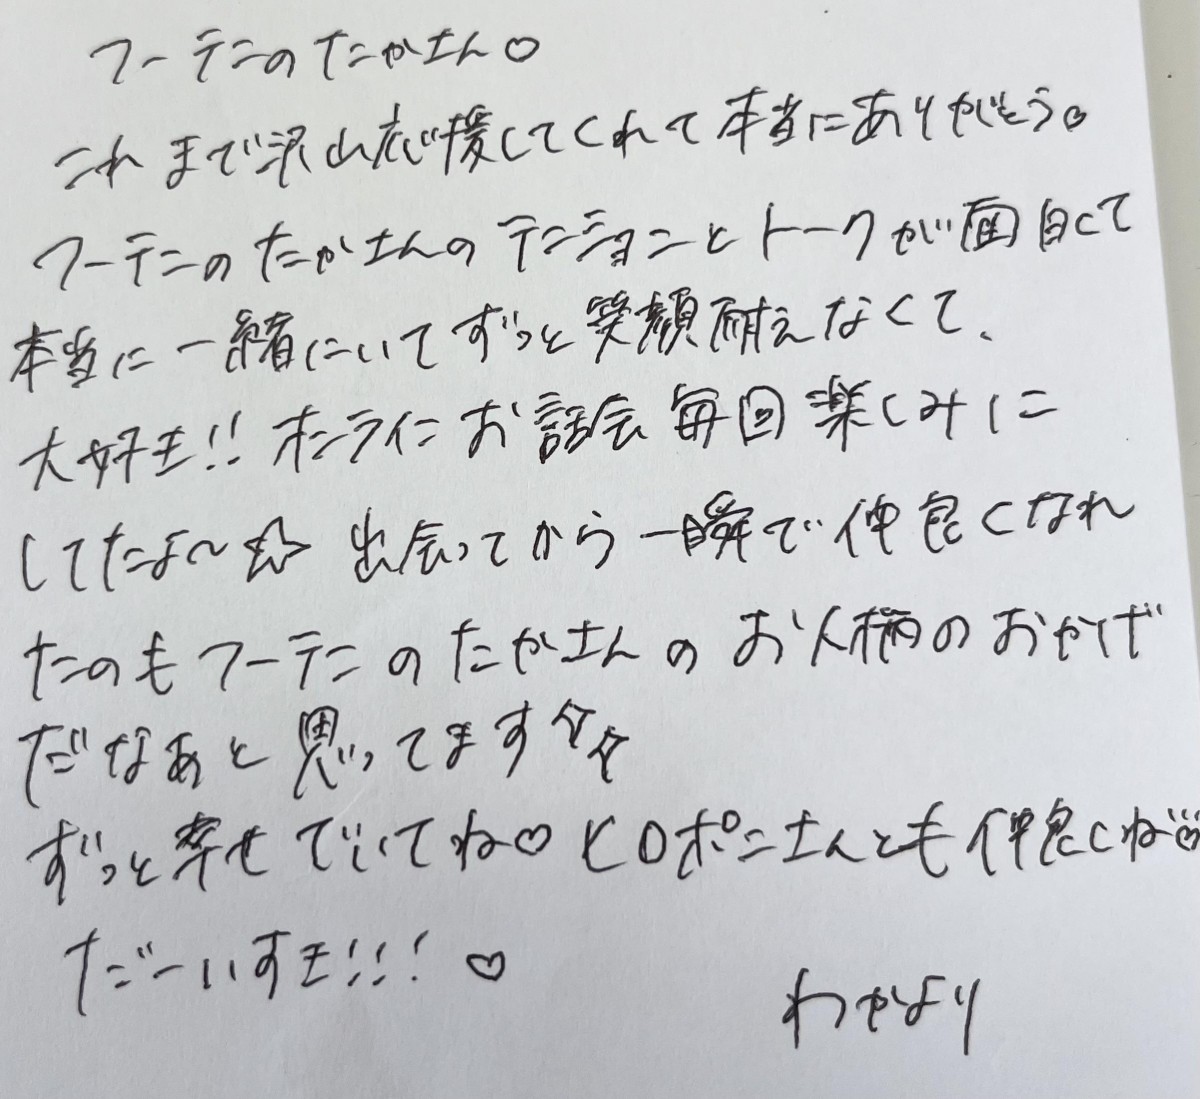 フーテンのたかさん♡
これまで沢山応援してくれて本当にありがとう。
フーテンのたかさんのテンションとトークが面白くて
本当に一緒にいてずっと笑顔耐えなくて、
大好き!! オンラインお話会毎回楽しみに
してたよ〜☆ 出会ってから一瞬で仲良くなれ
たのもフーテンのたかさんのお人柄のおかげ
だなぁと思ってます☆☆
ずっと幸せでいてね♡ ヒロポンさんとも仲良くね♡
だーいすき!!! ♡
わかより